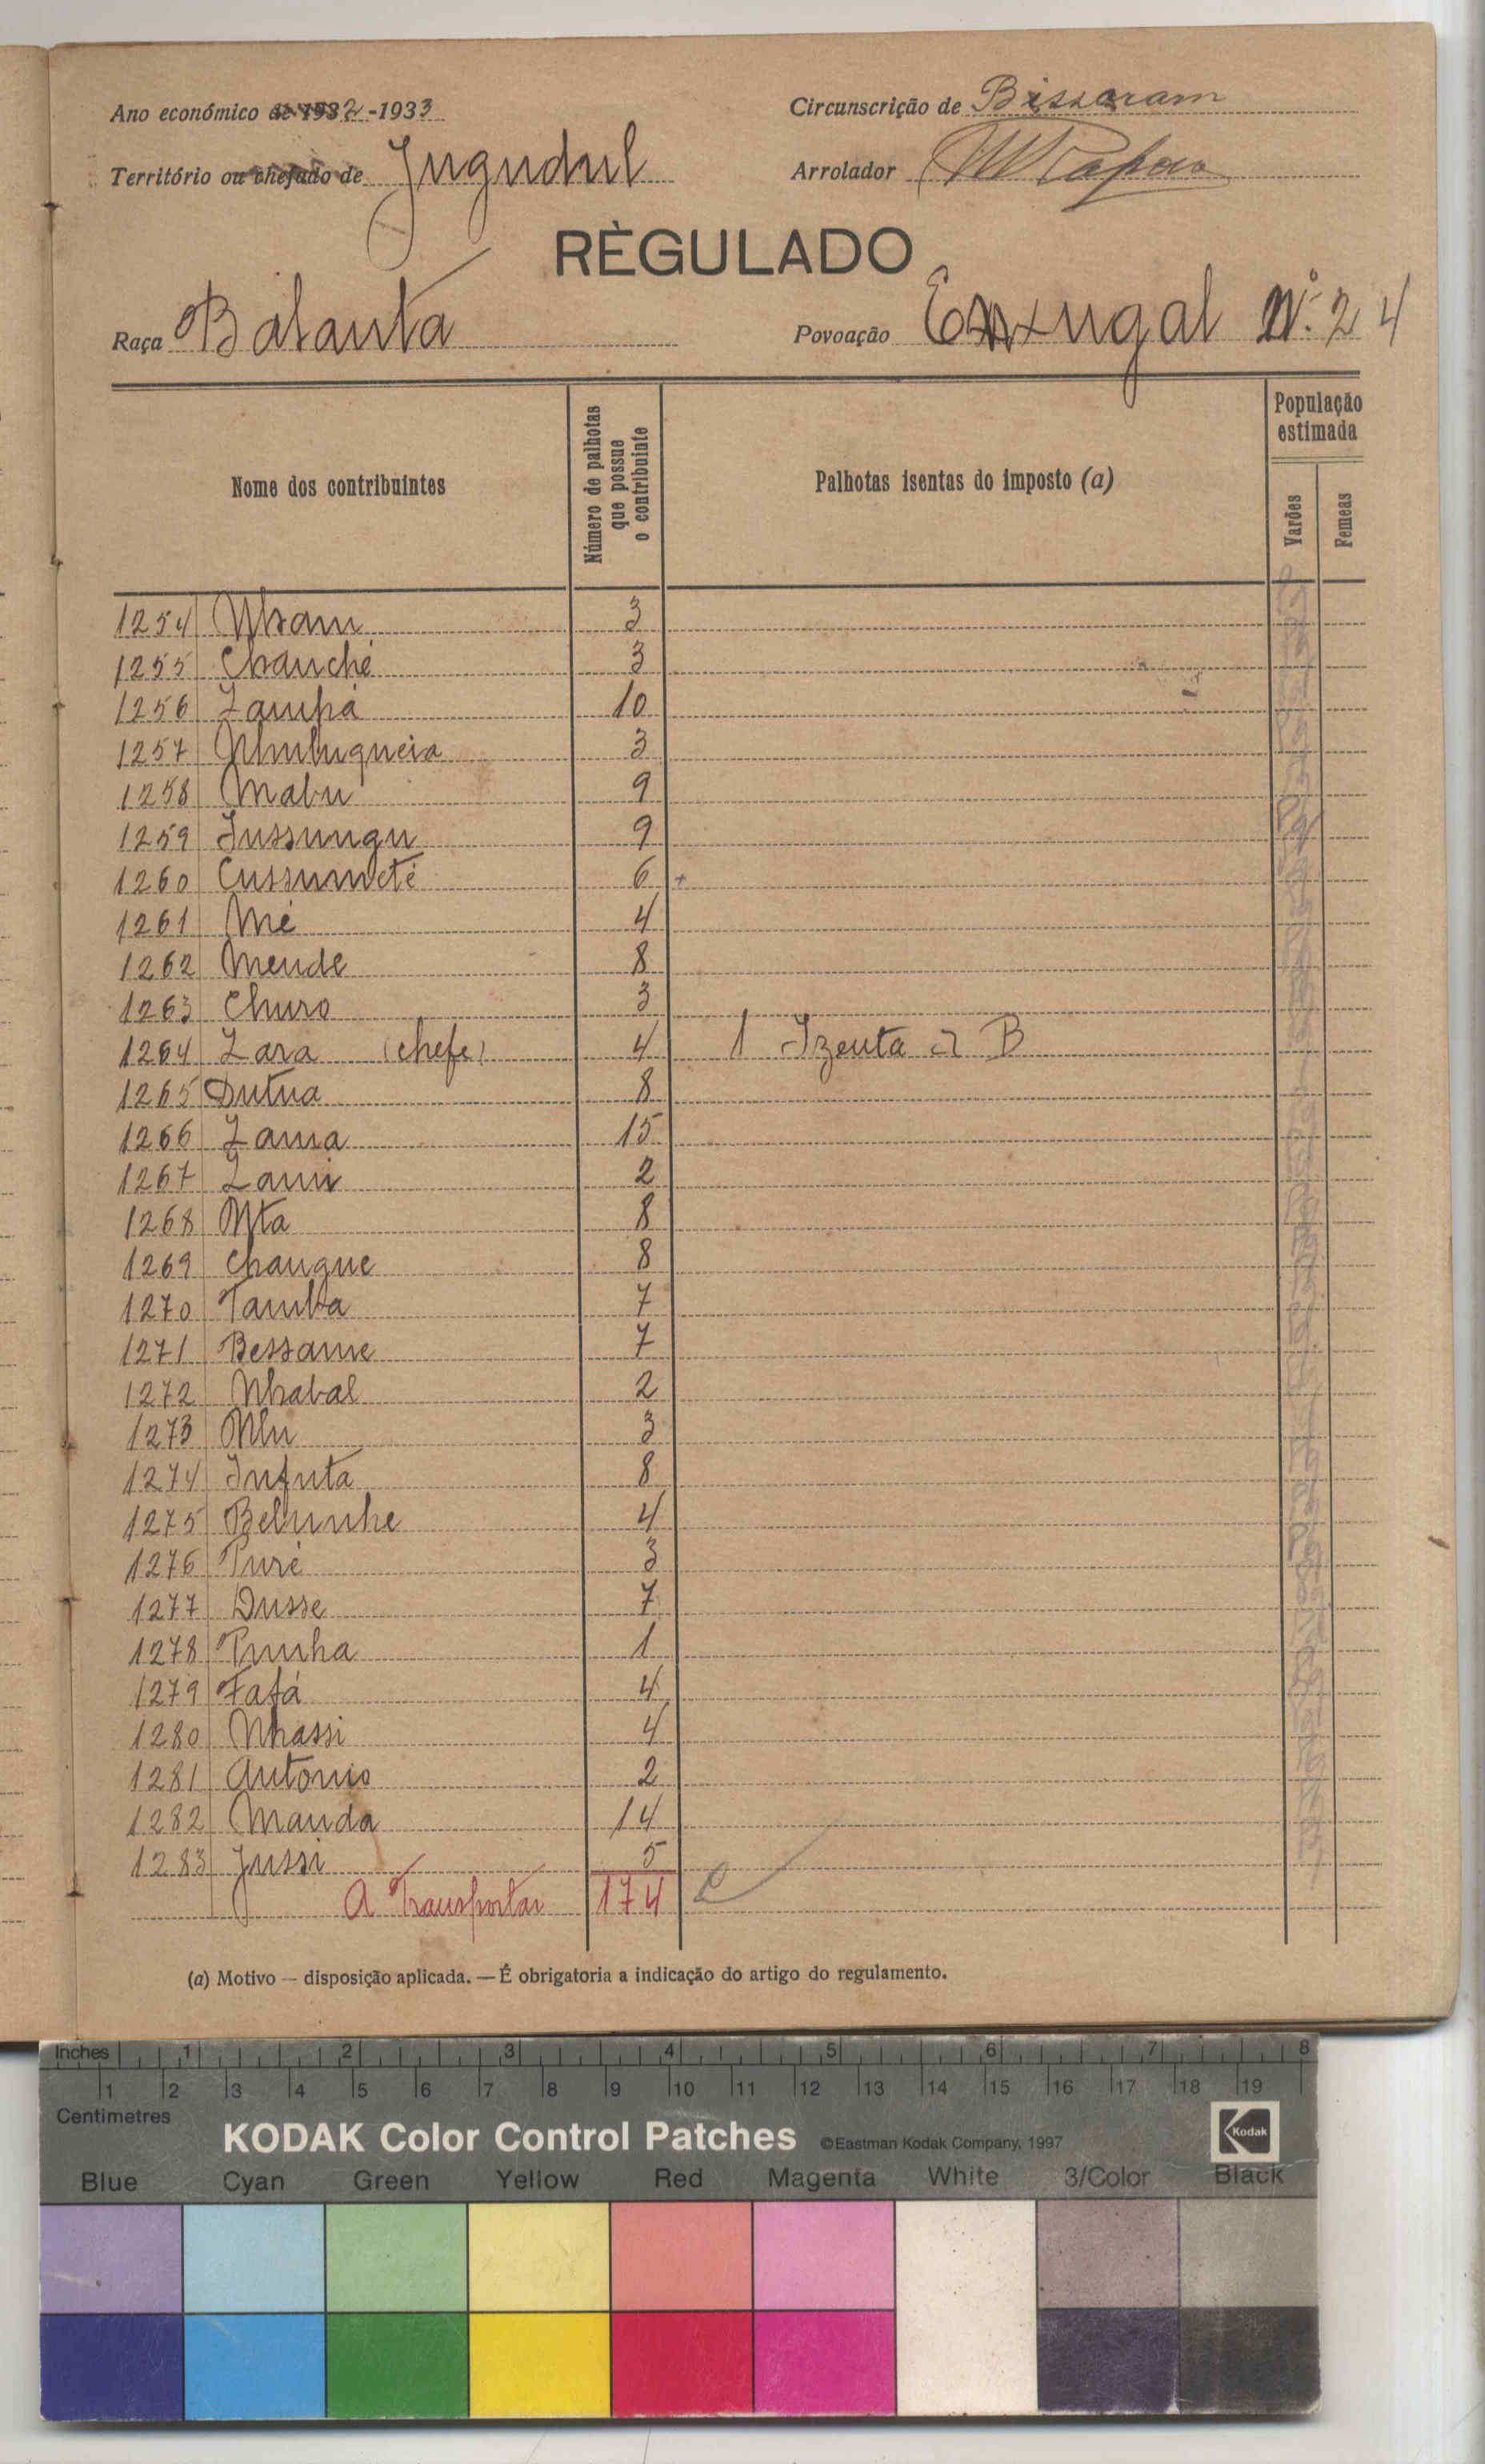 Ano económico de 1932-1933
Circunscrição de Bissoram
Território ou chefado de Jugudul
Arrolador
RÈGULADO
Raça Balanta
Povoação Enxugal N.º 24
Nome dos contribuintes
Número de palhotas que possue o contribuinte
Palhotas isentas do imposto (a)
População estimada
Varões
Femeas
1254 Nham 3
1255 Chanché 3
1256 Zambá 10
1257 3
1258 Mabu 9
1259 Jussungu 9
1260 Cussumeté 6 +
1261 Mé 4
1262 Mende 8
1263 Churo 3
1264 Zara (chefe) 4 1 Izenta a) B
1265 Dutna 8
1266 Zama 15
1267 2
1268 Nta 8
1269 Changue 8
1270 Tamba 7
1271 Bessame 7
1272 Nhabal 2
1273 3
1274 Infuta 8
1275 Belunhe 4
1276 Puré 3
1277 Dusse 7
1278 1
1279 Fafá 4
1280 Nhassi 4
1281 Antonio 2
1282 Manda 14
1283 Jussi 5
A Transportar 174
(a) Motivo — disposição aplicada. — É obrigatoria a indicação do artigo do regulamento.
Inches 1 2 3 4 5 6 7 8
1 2 3 4 5 6 7 8 9 10 11 12 13 14 15 16 17 18 19
Centimetres
KODAK Color Control Patches ©Eastman Kodak Company, 1997 Kodak
Blue Cyan Green Yellow Red Magenta White 3/Color Black